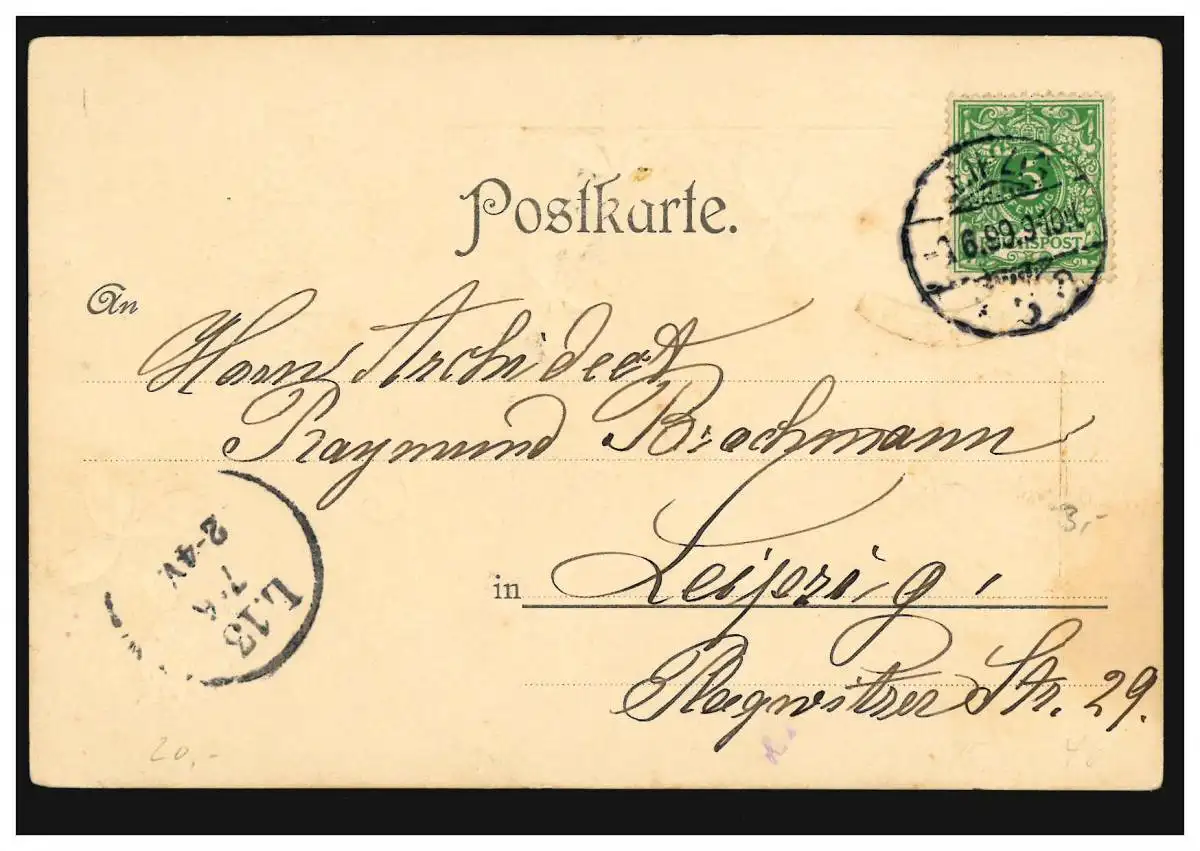 Postkarte.
5
PFENNIG
REICHSPOST
6.99.9-10V.
c.
An
Herrn Architect
Raymund Brachmann
in Leipzig,
Plagwitzer Str. 29.
L.13
7.6
2-4V
3,-
20,-